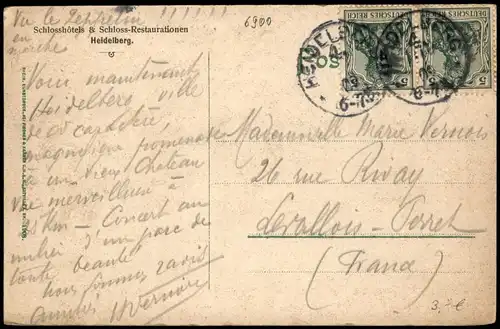 Vu le Zeppelin !!!!!!
en marche
Schlosshôtels & Schloss-Restaurationen
Heidelberg.
6900
Voici maintenant
Heidelberg ville
de
magnifique promenade
à un vieux château
vue merveilleuse à
Km - Concert au
milieu d'un parc de
toute beauté
Nous sommes ravis
amitiés HVernois
DEUTSCHES REICH
5
DEUTSCHES REICH
5
HEIDELBERG
6-7
Mademoiselle Marie Vernois
26 rue Rivay
Levallois-Perret
(France)
3,-€